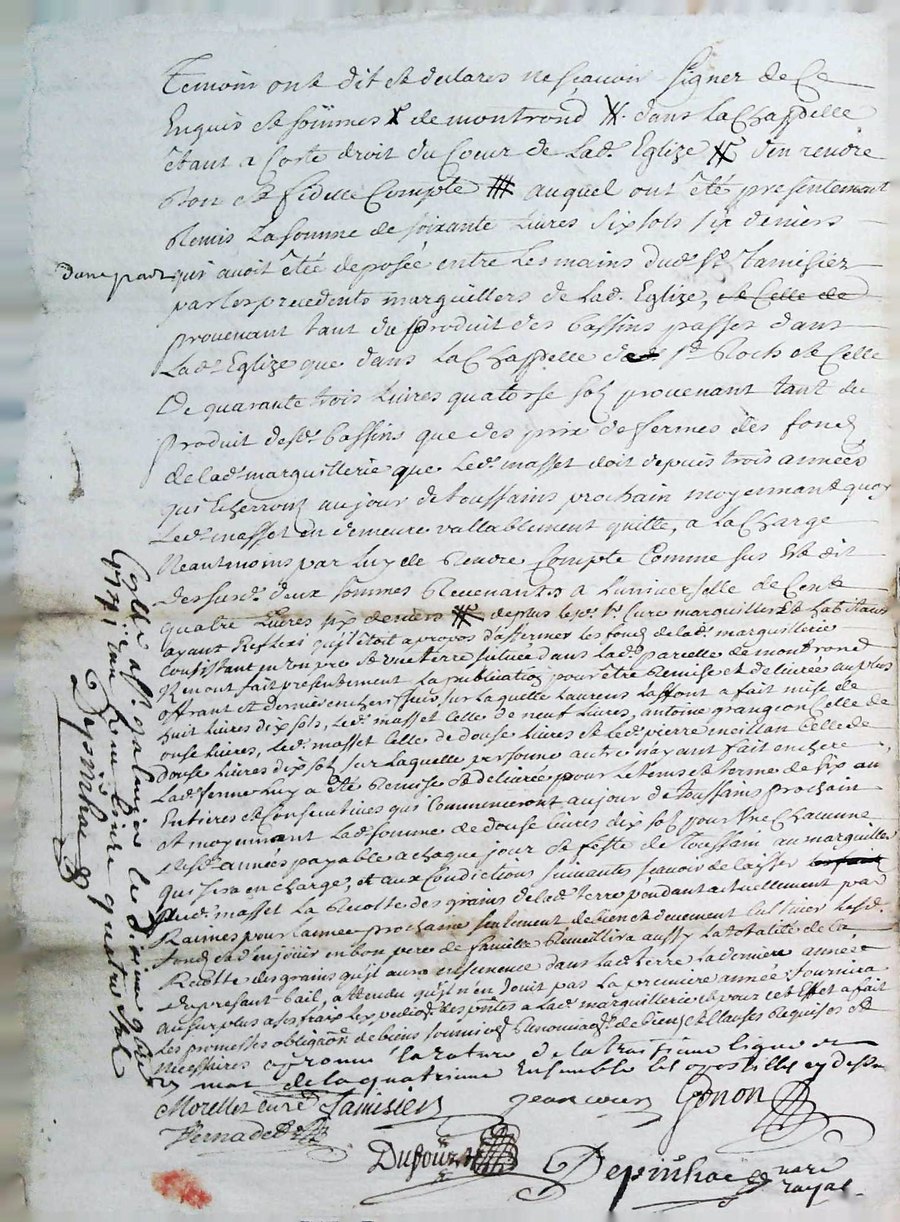 Temoins ont dit et declares ne scavoir signer de ce
Enquis et sommes X de montrond X. dans la Chappelle
étant a Coste droit du Coeur de Lad. Eglize X d'en rendre
Bon et fidelle Compte # auquel ont été presentement
Remis La somme de soixante Livres six sols six deniers
d'une part qui avoit êtée deposée entre Les mains dud. Sr. Tamisier
par les precedents marguilliers de Lad. Eglize, et Celle de
provenant tant du produit des bassins passer dans
Lad. Eglize que dans La Chappelle de St. Roch et Celle
De quarante trois Livres quatorse sols provenant tant du
produit desd. bassins que des prix de fermes des fonds
de lad. marguillerie que Led. masset doit depuis trois années
qui Echerront au jour de toussains prochain moyennant quoy
Led. masset en demeure vallablement quitte, a la Charge
Neantmoins par Luy de Rendre Compte Comme sus est dit
Desusd. deux sommes Revenants a L'universelle de Cent
quatre Livres six deniers # deplus led. Sr. Curé marguilliers et habitans
ayant Reflechi qu'il étoit a propos d'affermer les fonds de lad. marguillerie
Consistant en un pré et une terre située dans Lad. parcelle de montrond
Ils en ont fait presentement La publication pour être Remise et delivrée au plus
offrant et dernier encherisseur sur laquelle Laurens Laffont a fait mise de
huit Livres dix sols, Led. masset Celle de neuf Livres, antoine grangeon Celle de
onse Livres, Led. masset Celle de douse Livres et Led. pierre meillan Celle de
douse Livres dix sols sur Laquelle personne autre n'ayant fait enchere
Lad. ferme luy a été Remise et delivrée pour le tems et terme de six ans
Entieres et Consecutives qui Commenceront au jour de toussains prochain
et moyennant Lad. somme de douse livres dix sols pour Une Chacune
desd. années payable a chaque jour et feste de Toussain au marguillier
qui sera en charge, et aux Condictions suivantes scavoir de laisser
aud. masset La Recolte des grains de lad. terre pendant actuellement par
Raisines pour l'année prochaine seulement de bien et deuement Cultiver Lesd.
fonds et en jouir en bon pere de famille Recuillira aussy La totalité de la
Recolte des grains qu'il aura ensemencé dans lad. terre La derniere année
du present bail, attendu qu'il n'en jouit pas La premiere année; fournira
au surplus a ses fraix Expedion. des presentes a Lad. marguillerie et pour cet Effet a fait
Les promesses obligaon. de biens soumions. Renonciaons. de biens et Clauses Requises et
Necessaires approuvé la rature de la troisieme ligne et
un mot de la quatrieme Ensemble les apostilles cy dessus
Morellet curé Tamisier jean cour Gonon
Bernadet
Dufour Depinhac nore
royal
Collé a St. galmier le dixieme
1771: reçu livre quatre sols
Depinhac